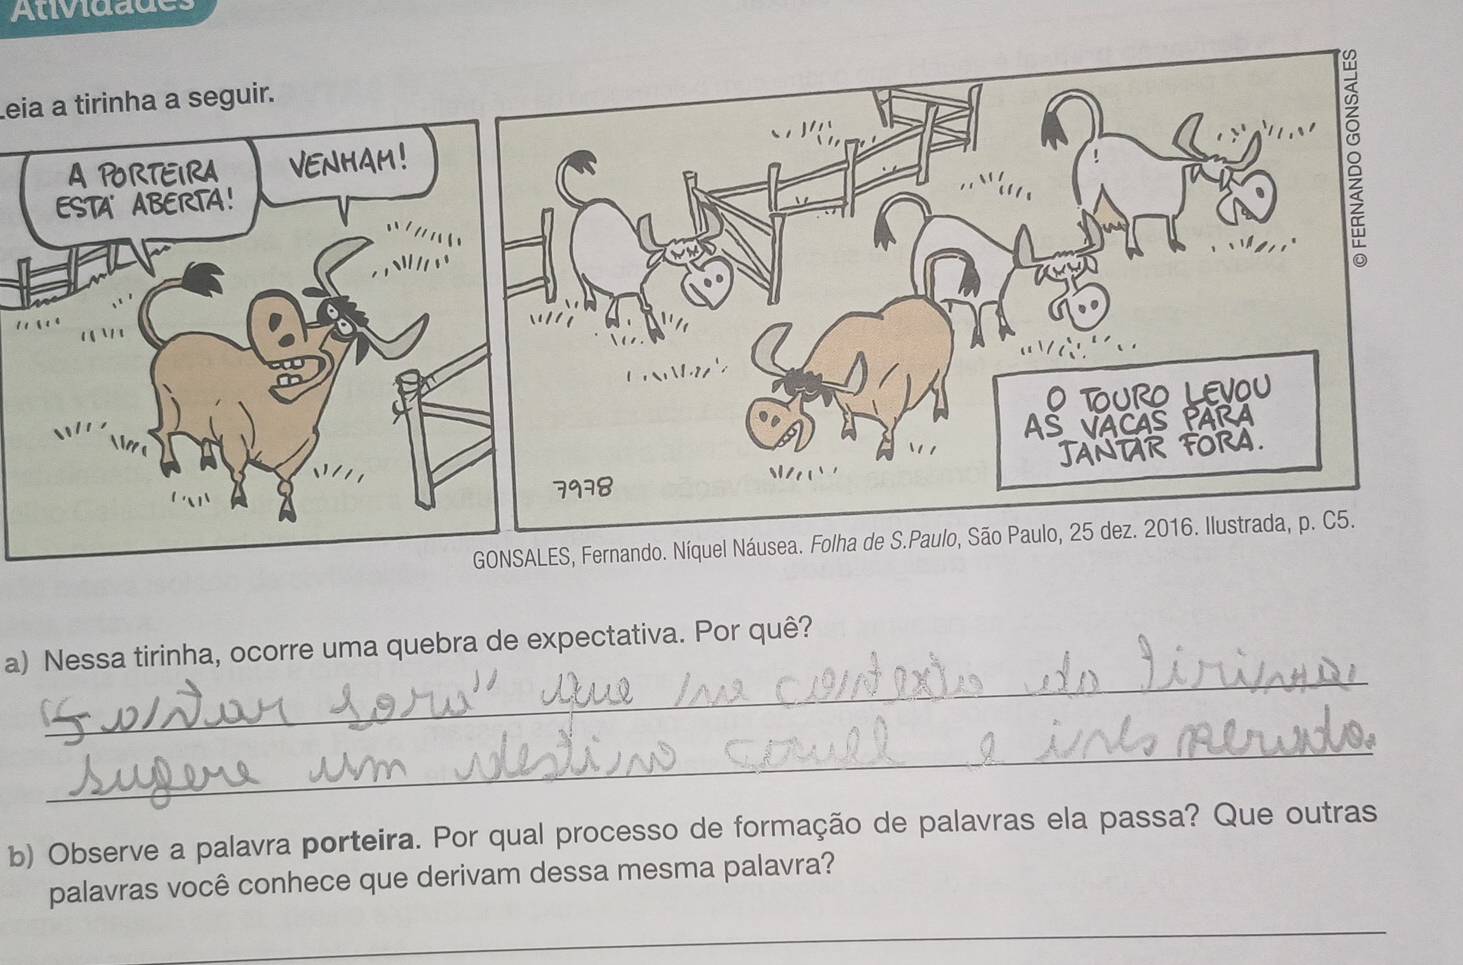 Atividades
Leia a tirinha a seguir.
A PORTEIRA
ESTÁ ABERTA!
VENHAM!
O TOURO LEVOU
AS VACAS PARA
JANTAR FORA.
7978
© FERNANDO GONSALES
GONSALES, Fernando. Níquel Náusea. Folha de S.Paulo, São Paulo, 25 dez. 2016. Ilustrada, p. C5.
a) Nessa tirinha, ocorre uma quebra de expectativa. Por quê?
que contexto do
sugere um destino e
b) Observe a palavra porteira. Por qual processo de formação de palavras ela passa? Que outras
palavras você conhece que derivam dessa mesma palavra?